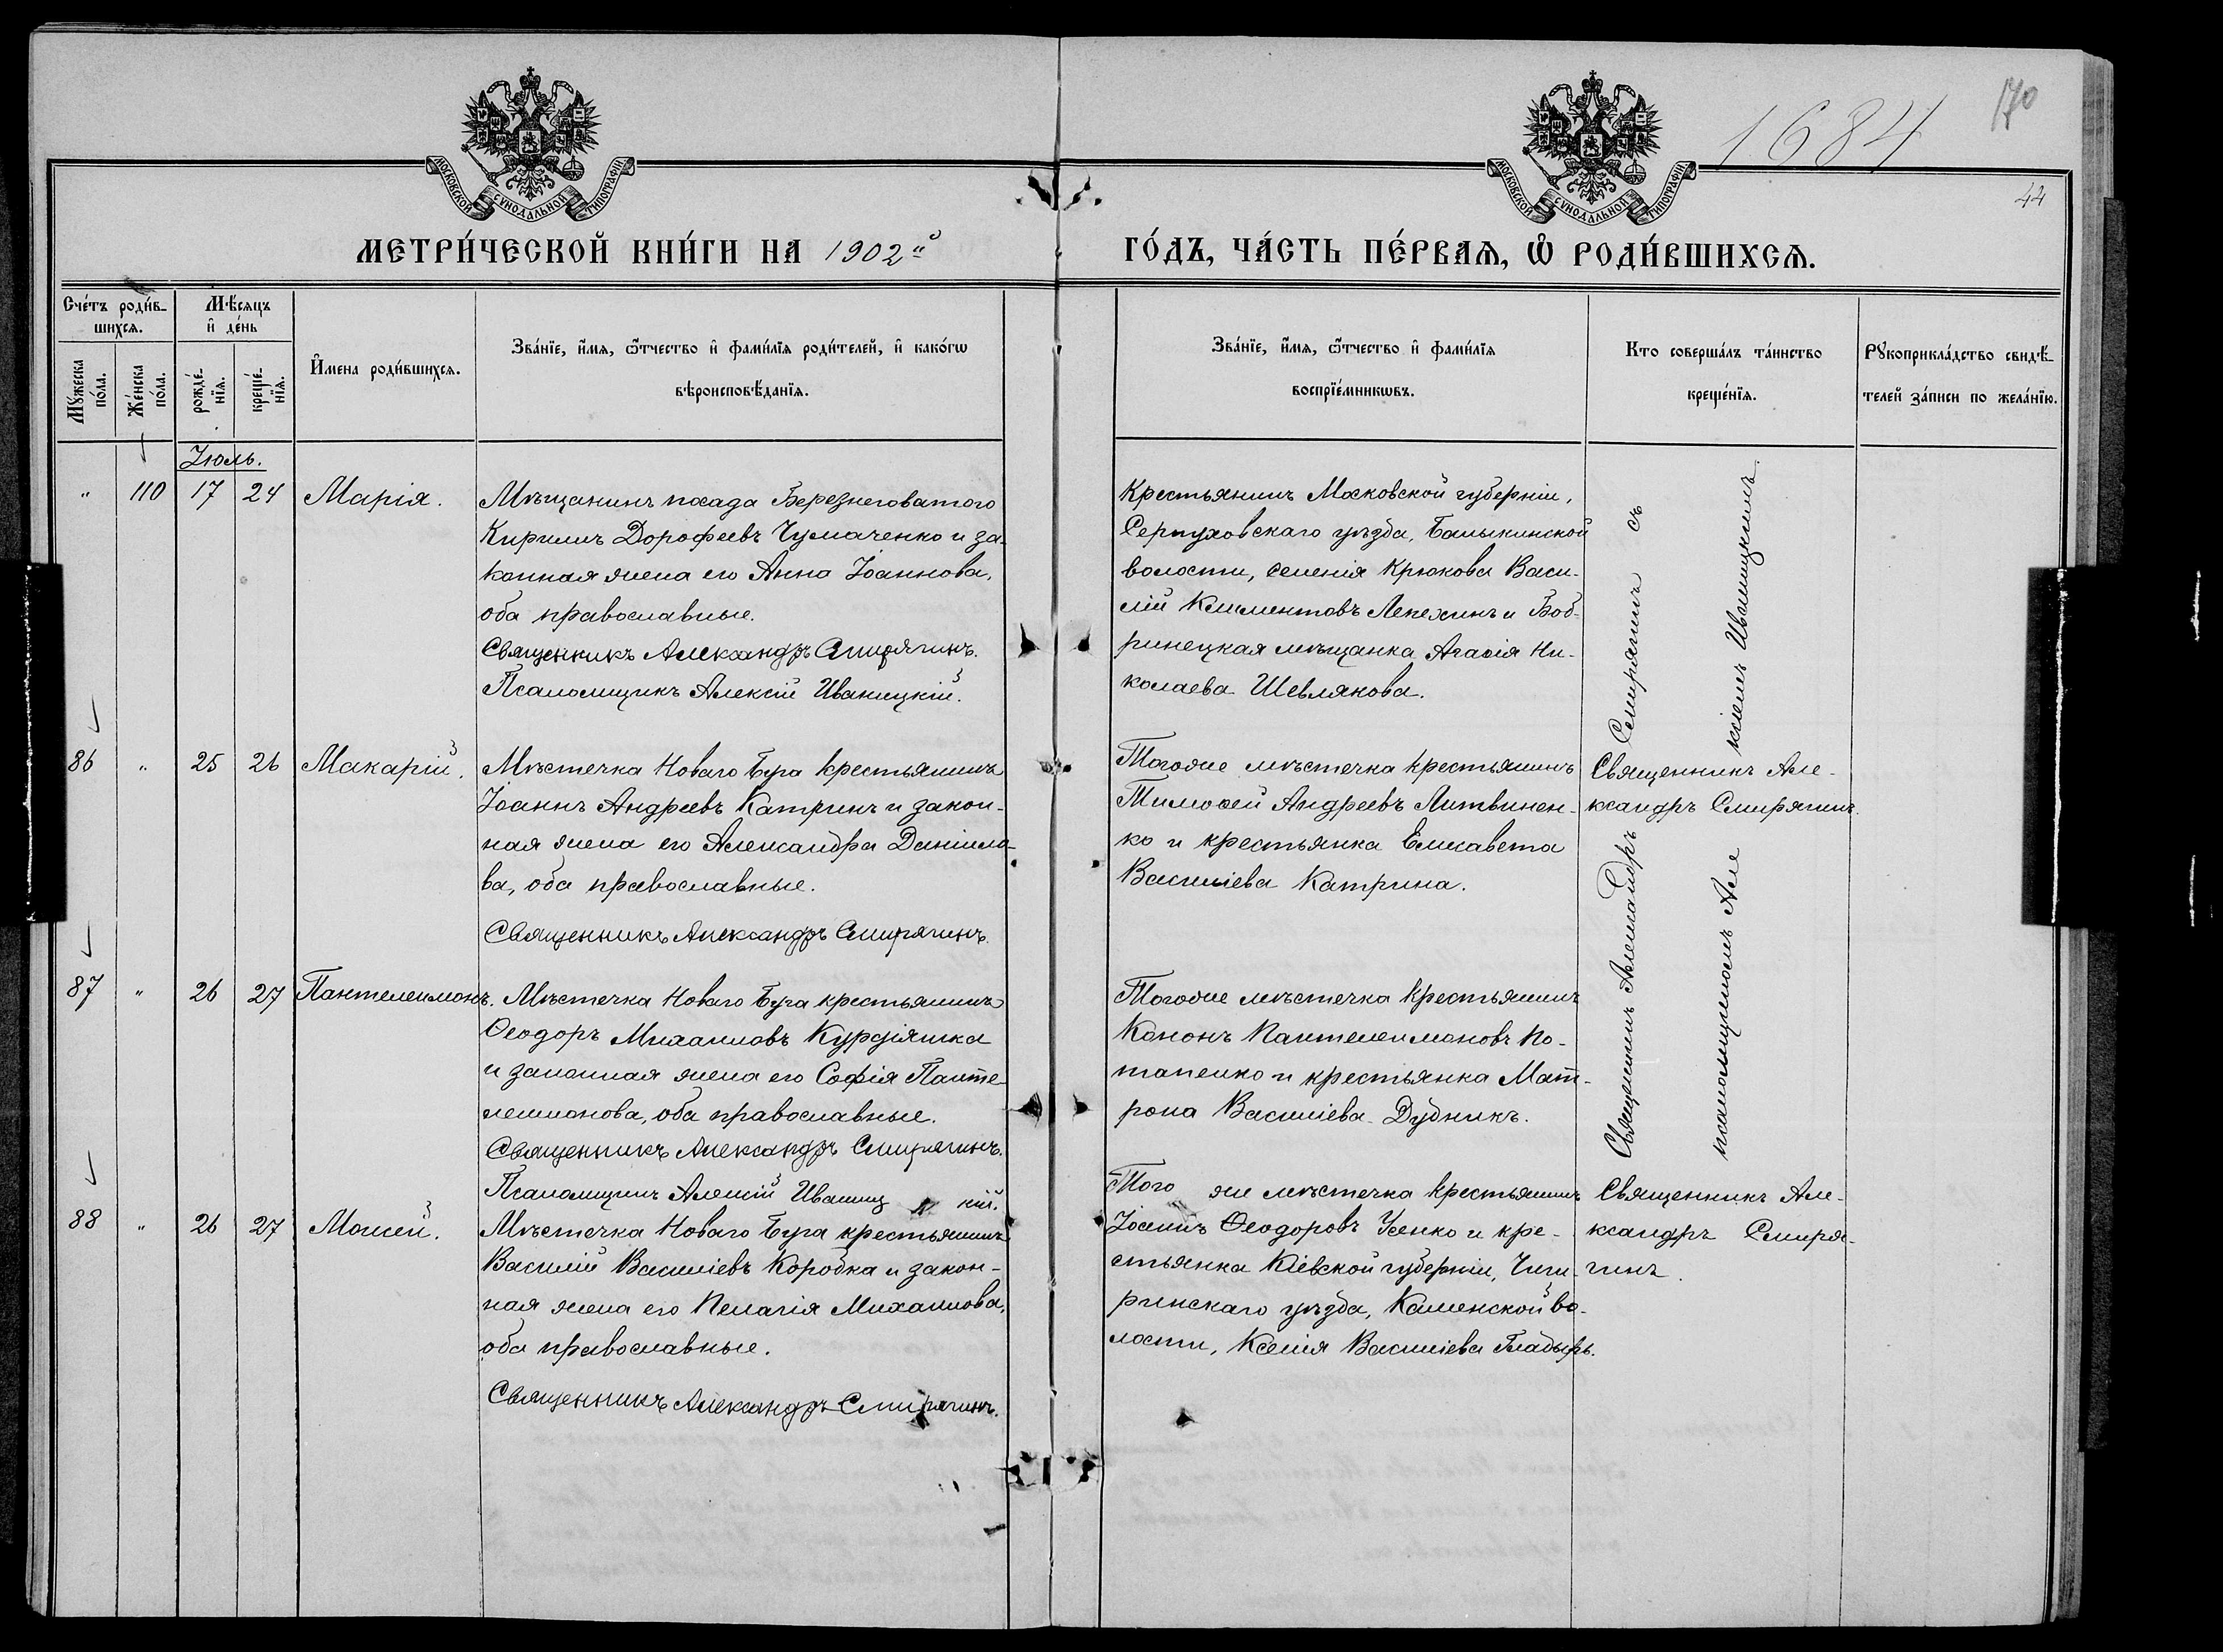 1684
170
44
МОСКОВСКОЙ СѴНОДАЛЬНОЙ ТИПОГРАФІИ
МОСКОВСКОЙ СѴНОДАЛЬНОЙ ТИПОГРАФІИ
МЕТРИ́ЧЕСКОЙ КНИ́ГИ НА 1902й
ГО́ДЪ, ЧА́СТЬ ПЕ́РВАѦ, Ѡ҆ РОДИ́ВШИХСѦ.
Сче́тъ роди́в-
шихсѧ.
Мѣ́сяцъ
и҆ де́нь
Мꙋ́жеска
по́ла.
Же́нска
по́ла.
рожде́-
нїѧ.
креще́-
нїѧ.
И҆мена роди́вшихсѧ.
Зва́нїе, и҆́мѧ, ѻ҆́тчество и҆ фами́лїѧ роди́телей, и҆ како́гѡ
вѣроисповѣ́данїѧ.
Зва́нїе, и҆́мѧ, ѻ҆́тчество и҆ фами́лїѧ
воспрїе́мникѡвъ.
Кто соверша́лъ та́инство
креще́нїѧ.
Рꙋкоприкла́дство свидѣ́-
телей за́писи по жела́нїю.
Іюль.
" 110 17 24 Марія.
Мѣщанинъ посада Березнеговатого
Кирилъ Дорофеевъ Чумаченко и за-
конная жена его Анна Іоаннова,
оба православные.
Священникъ Александръ Смирягинъ.
Псаломщикъ Алексій Иваницкій.
Крестьянинъ Московской губерніи,
Серпуховскаго уѣзда, Бавыкинской
волости, селенія Крюкова Васи-
лій Климентовъ Лепехинъ и Боб-
ринецкая мѣщанка Агафія Ни-
колаева Шевлякова.
Священникъ Александръ Смирягинъ съ
псаломщикомъ Алексіемъ Иваницкимъ.
86 " 25 26 Макарій.
Мѣстечка Новаго Буга крестьянинъ
Іоаннъ Андреевъ Катринъ и закон-
ная жена его Александра Даніило-
ва, оба православные.
Священникъ Александръ Смирягинъ.
Того же мѣстечка крестьянинъ
Тимоѳей Андреевъ Литвинен-
ко и крестьянка Елисавета
Василіева Катрина.
Священникъ Але-
ксандръ Смирягинъ.
87 " 26 27 Пантелеимонъ.
Мѣстечка Новаго Буга крестьянинъ
Ѳеодоръ Михаиловъ Курдіяшка
и законная жена его Софія Панте-
леимонова, оба православные.
Священникъ Александръ Смирягинъ.
Псаломщикъ Алексій Иваницкій.
Того же мѣстечка крестьянинъ
Кононъ Пантелеимоновъ По-
тапенко и крестьянка Мат-
рона Василіева Дудникъ.
88 " 26 27 Моисей.
Мѣстечка Новаго Буга крестьянинъ
Василій Василіевъ Коробка и закон-
ная жена его Пелагія Михаилова,
оба православные.
Священникъ Александръ Смирягинъ.
Того же мѣстечка крестьянинъ
Іоаннъ Ѳеодоровъ Усенко и кре-
стьянка Кіевской губерніи, Чиги-
ринскаго уѣзда, Каменской во-
лости, Ксенія Василіева Гладырь.
Священникъ Але-
ксандръ Смиря-
гинъ.